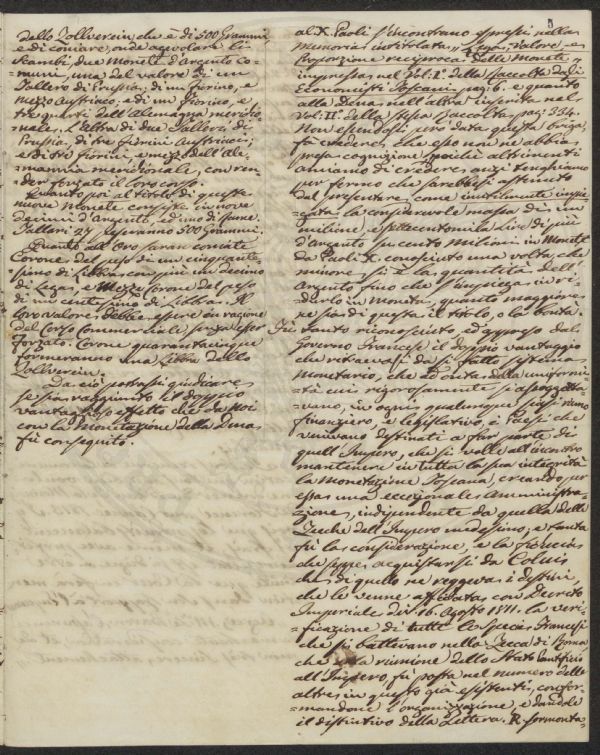 dello Zollverein che è di 500 Grammi,
e di coniare, onde agevolare li
Scambi, due Monete d'Argento co-
muni, una del valore di un
Tallero di Prussia; di un fiorino, e
mezzo Austriaco; e di un fiorino, e
tre quarti dell'Alemagna meridio-
nale. L'altra di due Talleri di
Prussia, di tre fiorini Austriaci;
e di tre fiorini, e mezzo dell'Ale-
mannia meridionale, con ren-
der forzato il loro corso.
Quanto poi al titolo di queste
nuove Monete consiste in nove
decimi d'Argento, ed uno di Rame.
Talleri 27 peseranno 500 Grammi.
Quanto all'Oro saran coniate
Corone del peso di un cinquante-
simo di Libbra con più un decimo
di Lega; e Mezze Corone del peso
di un centesimo di Libbra. Il
loro valore debbe essere in ragione
del Corso Commerciale senza esser
forzato. Corone quarantacinque
formeranno una Libbra dello
Zollverein.
Da ciò potrassi giudicare
se sia raggiunto il doppio
vantaggioso effetto che da Noi
con la Monetazione della Dena
fù conseguito.
al X. Paoli s'incontrano espressi nella
Memoria intitolata
Proporzione reciproca delle Monete
impressa nel Vol: I.º della Raccolta degli
Economisti Toscani pag: 6. e quanto
alla Dena nell'altra inserita nel
Vol: II. della stessa Raccolta pag: 334.
Non essendosi però data questa briga,
fà credere che esso non ne abbia
presa cognizione, poiché altrimenti
amiamo di credere anzi tenghiamo
per fermo che sarebbesi astenuto
dal presentare, come inutilmente impie-
gata la considerevole massa di un
milione, e settecentomila Lire di più
d'Argento su cento Milioni in Monete
da Paoli X. conosciuto una volta che
minore si è la quantità dell'
Argento fino che s'impiega in ri-
durlo in Moneta, quanto maggiore
ne sia di questa il titolo, o la bontà.
Fù tanto riconosciuto, ed appreso dal
Governo Francese il doppio vantaggio
che ritraevasi da sì fatto sistema
Monetario, che ad onta della uniformi-
tà cui rigorosamente si assoggetta-
vano, in ogni qualunque siasi ramo
finanziero, e legislativo, i Paesi che
venivano destinati a far parte di
quell'Impero, che si volle all'incontro
mantenere in tutta la sua integrità
la Monetazione Toscana, creando per
essa una eccezionale Amministra-
zione, indipendente da quella delle
Zecche dell'Impero medesimo; e tanta
fù la considerazione, e la fiducia
che seppe acquistarsi da Colui
che di quello ne reggeva i destini,
che le venne affidata con Decreto
Imperiale dei 16. Agosto 1811. la veri-
ficazione di tutte le specie Francesi
che si battevano nella Zecca di Roma,
che colla riunione dello Stato Pontificio
all'Impero, fù posta nel numero delle
altre, in questo già esistenti, confor-
mandone l'organizzazione, e dandole
il distintivo della Lettera. R. sormonta-